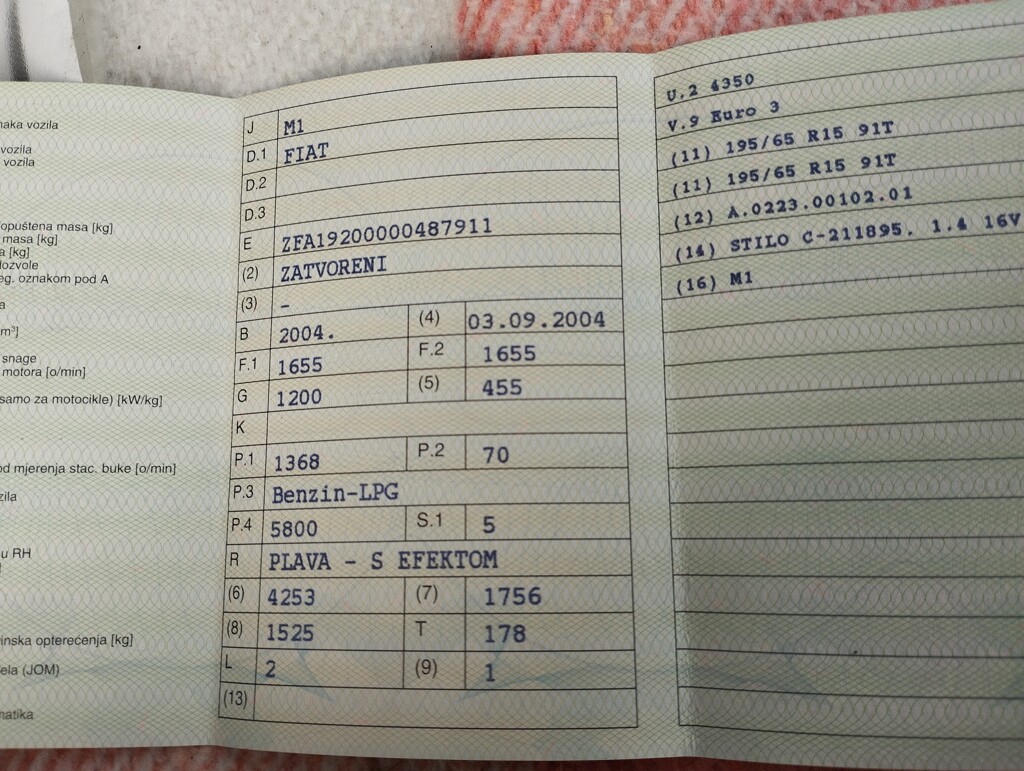 naka vozila
vozila
vozila
opuštena masa [kg]
masa [kg]
[kg]
dozvole
eg. oznakom pod A
m³]
snage
motora [o/min]
samo za motocikle) [kW/kg]
od mjerenja stac. buke [o/min]
zila
u RH
inska opterećenja [kg]
ela (JOM)
matika
J M1
D.1 FIAT
D.2
D.3
E ZFA19200000487911
(2) ZATVORENI
(3) -
B 2004. (4) 03.09.2004
F.1 1655 F.2 1655
G 1200 (5) 455
K
P.1 1368 P.2 70
P.3 Benzin-LPG
P.4 5800 S.1 5
R PLAVA - S EFEKTOM
(6) 4253 (7) 1756
(8) 1525 T 178
L 2 (9) 1
(13)
U.2 4350
V.9 Euro 3
(11) 195/65 R15 91T
(11) 195/65 R15 91T
(12) A.0223.00102.01
(14) STILO C-211895. 1.4 16V
(16) M1